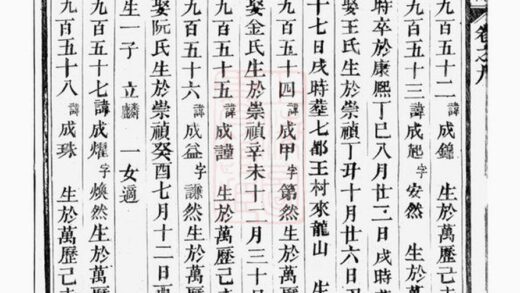 九百五十二 諱成錦 生於萬
九百五十三 諱成起 字安然 生
時卒於康熙丁巳八月廿二日戌時葬
娶王氏生於崇禎丁丑十月廿六日丑
十七日戌時葬七都王村來龍山 生
九百五十四 諱成甲 字第然生於
娶金氏生於崇禎辛未十一月三十日
九百五十五 諱成謹 生於萬歷己
九百五十六 諱成益 字謙然生於
娶阮氏生於崇禎癸酉七月十二日
生一子 立麟 一女適
九百五十七 諱成燿 字煥然生於萬
九百五十八 諱成珠 生於萬歷己